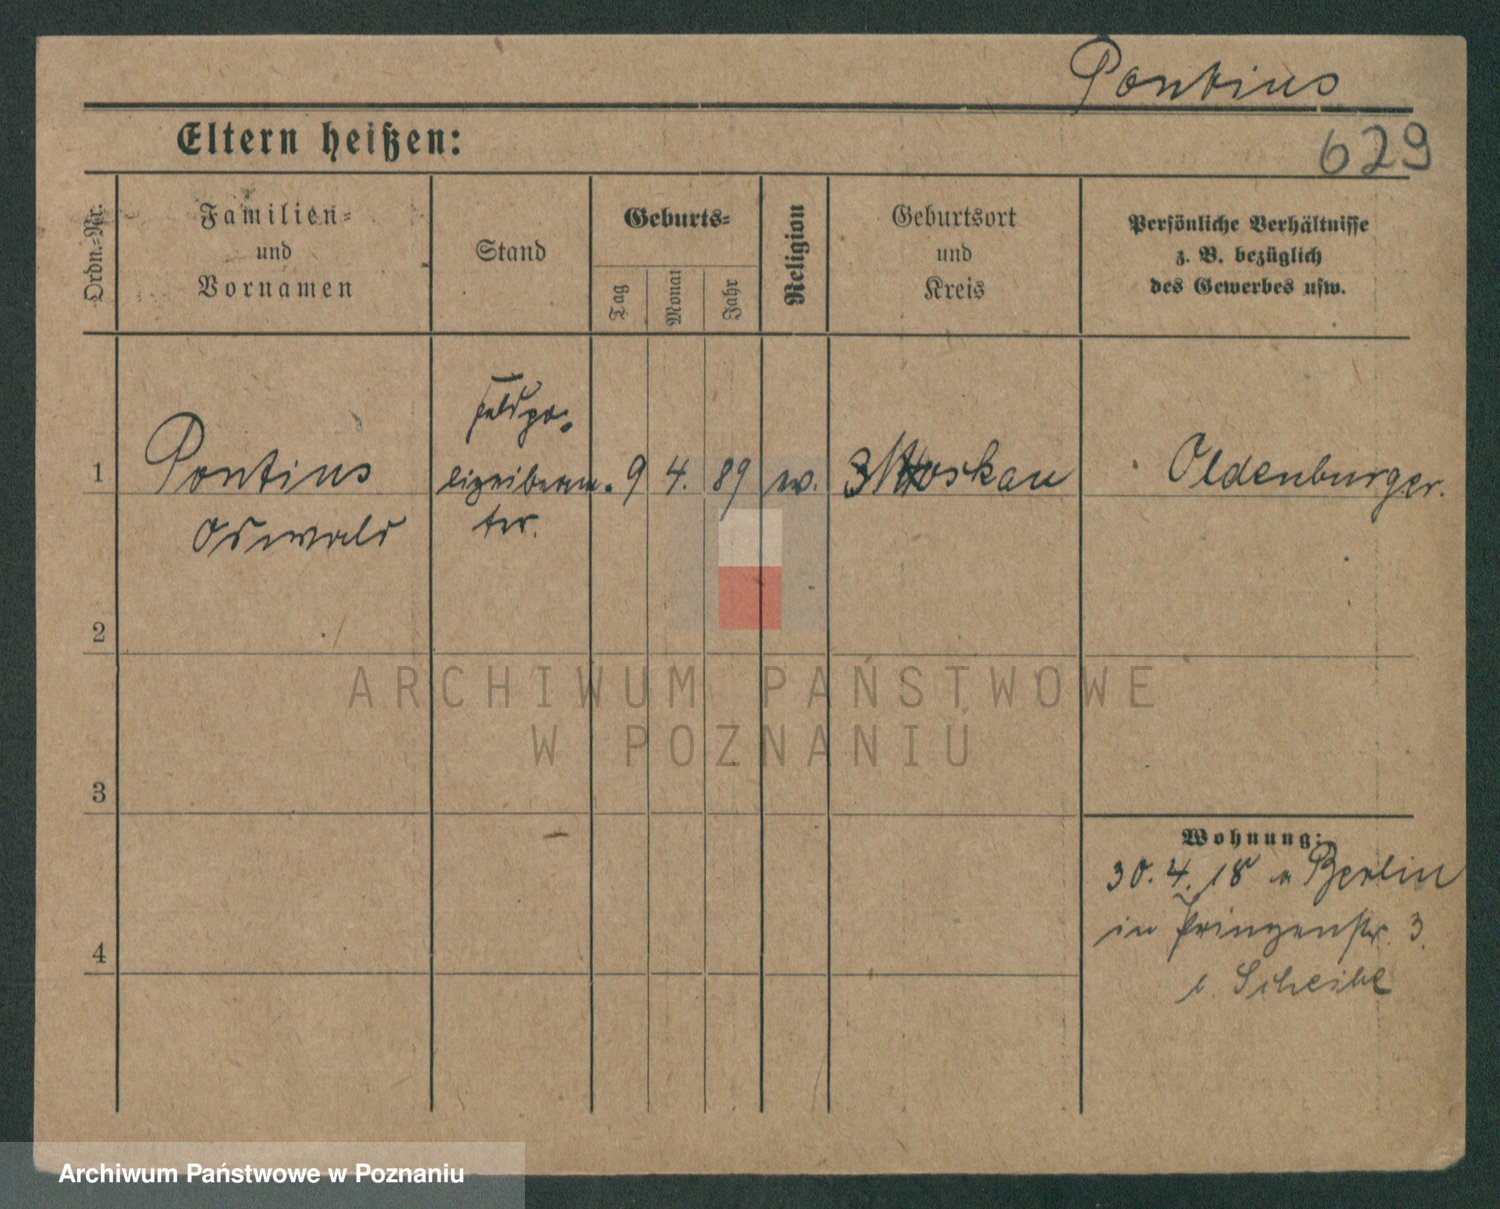 Pontius
629
Eltern heißen:
Ordn.-Nr.
Familien-
und
Vornamen
Stand
Geburts-
Tag
Monat
Jahr
Religion
Geburtsort
und
Kreis
Persönliche Verhältnisse
z. B. bezüglich
des Gewerbes usw.
1
Pontius
Oswald
Feldpo-
lizeibeam-
ter.
9
4.
89
ev.
Moskau
Oldenburger.
2
3
4
Wohnung:
30. 4. 18 n Berlin
in Prinzenstr. 3.
b. Scheibe
ARCHIWUM PAŃSTWOWE
W POZNANIU
Archiwum Państwowe w Poznaniu